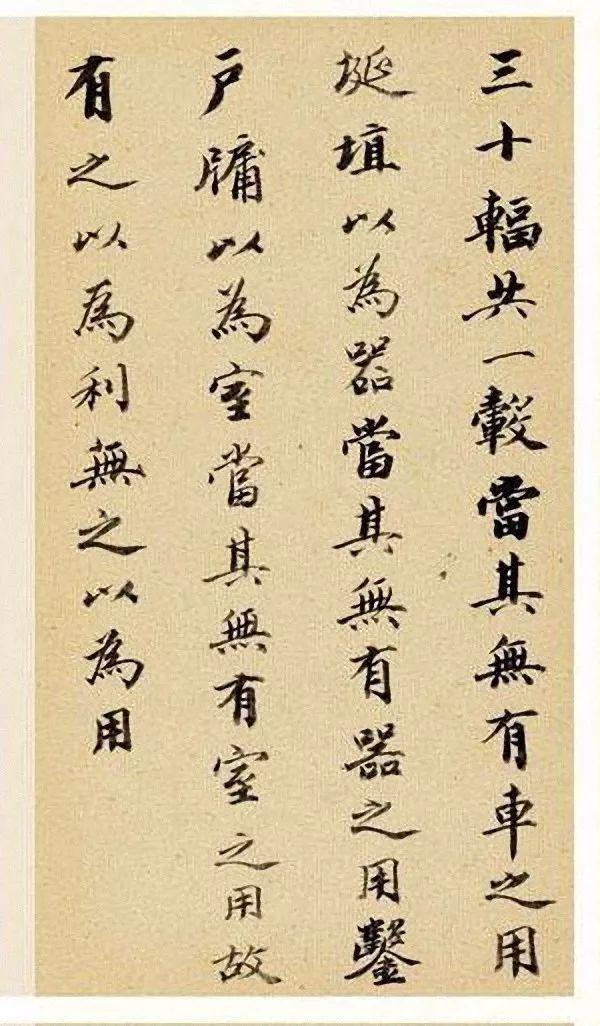 三十輻共一轂當其無有車之用
埏埴以為器當其無有器之用鑿
戶牖以為室當其無有室之用故
有之以為利無之以為用